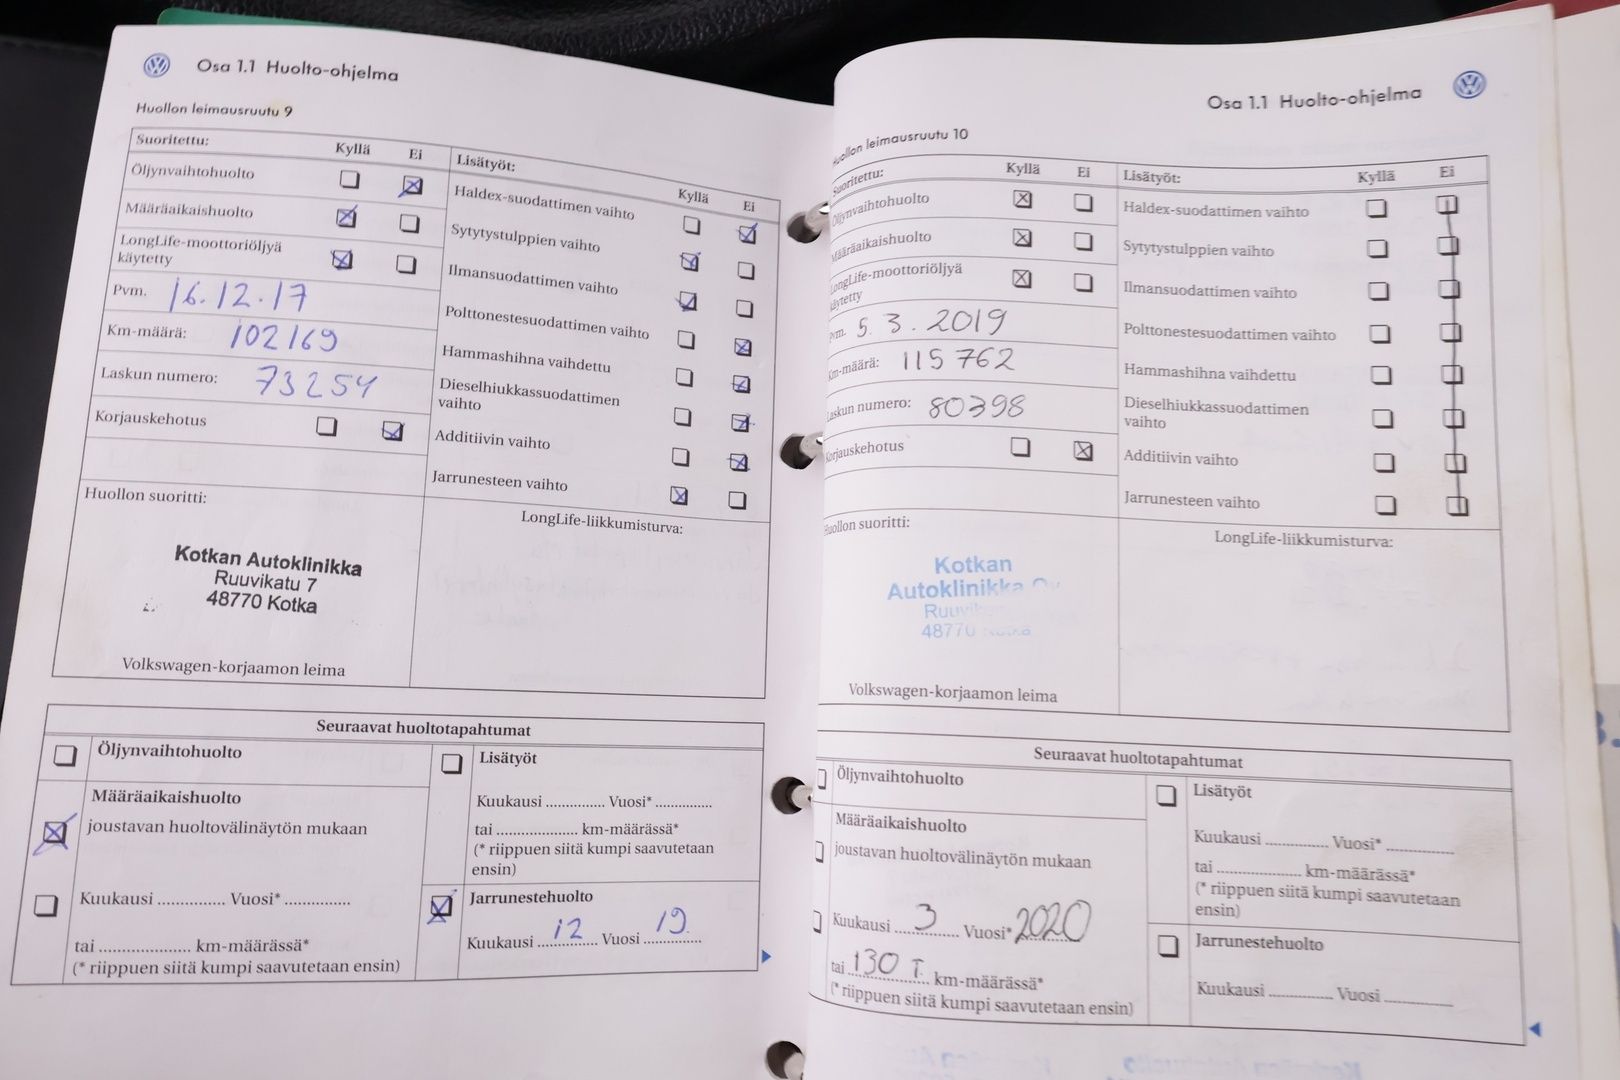 Osa 1.1 Huolto-ohjelma
Huollon leimausruutu 9
Suoritettu: Kyllä Ei
Öljynvaihtohuolto
Määräaikaishuolto
LongLife-moottoriöljyä
käytetty
Pvm. 16.12.17
Km-määrä: 102169
Laskun numero: 73254
Korjauskehotus
Huollon suoritti:
Kotkan Autoklinikka
Ruuvikatu 7
48770 Kotka
Volkswagen-korjaamon leima
Lisätyöt: Kyllä Ei
Haldex-suodattimen vaihto
Sytytystulppien vaihto
Ilmansuodattimen vaihto
Polttonestesuodattimen vaihto
Hammashihna vaihdettu
Dieselhiukkassuodattimen
vaihto
Additiivin vaihto
Jarrunesteen vaihto
LongLife-liikkumisturva:
Seuraavat huoltotapahtumat
Öljynvaihtohuolto
Määräaikaishuolto
joustavan huoltovälinäytön mukaan
Kuukausi .............. Vuosi* ..............
tai ................... km-määrässä*
(* riippuen siitä kumpi saavutetaan ensin)
Lisätyöt
Kuukausi ............ Vuosi* ............
tai ................. km-määrässä*
(* riippuen siitä kumpi saavutetaan
ensin)
Jarrunestehuolto
Kuukausi 12 Vuosi 19
Osa 1.1 Huolto-ohjelma
Huollon leimausruutu 10
Suoritettu: Kyllä Ei
Öljynvaihtohuolto
Määräaikaishuolto
LongLife-moottoriöljyä
käytetty
Pvm. 5.3.2019
Km-määrä: 115 762
Laskun numero: 80398
Korjauskehotus
Huollon suoritti:
Kotkan
Autoklinikka Oy
48770
Volkswagen-korjaamon leima
Lisätyöt: Kyllä Ei
Haldex-suodattimen vaihto
Sytytystulppien vaihto
Ilmansuodattimen vaihto
Polttonestesuodattimen vaihto
Hammashihna vaihdettu
Dieselhiukkassuodattimen
vaihto
Additiivin vaihto
Jarrunesteen vaihto
LongLife-liikkumisturva:
Seuraavat huoltotapahtumat
Öljynvaihtohuolto
Määräaikaishuolto
joustavan huoltovälinäytön mukaan
Kuukausi 3 Vuosi* 2020
tai 130 T. km-määrässä*
(* riippuen siitä kumpi saavutetaan ensin)
Lisätyöt
Kuukausi ............ Vuosi* ............
tai ................. km-määrässä*
(* riippuen siitä kumpi saavutetaan
ensin)
Jarrunestehuolto
Kuukausi ............ Vuosi ............